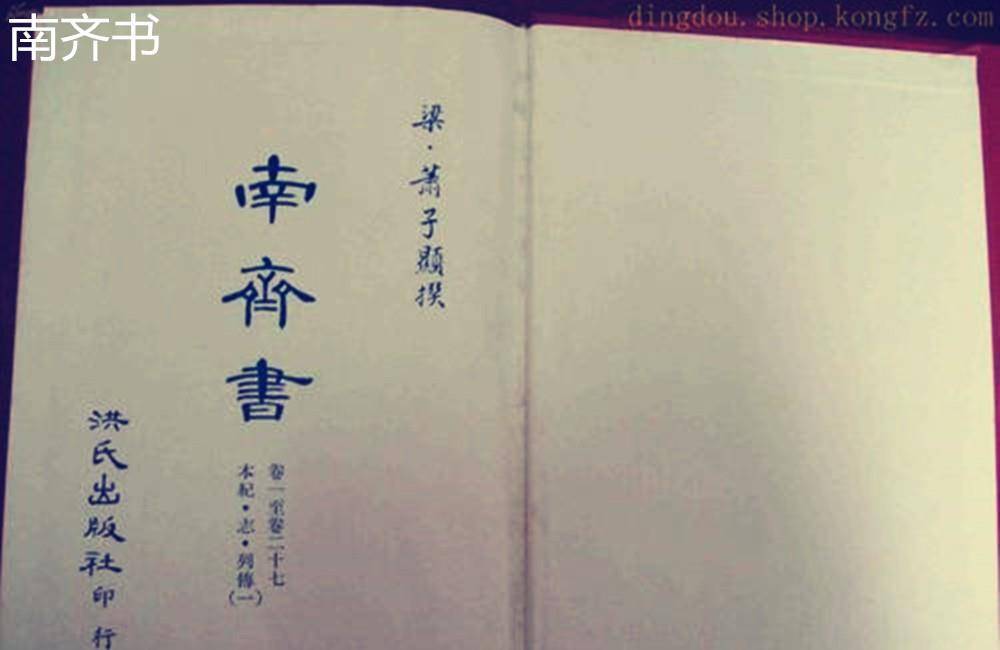 南齐书
dingdou.shop.kongfz.com
梁·萧子顯撰
南齊書
卷一至卷二十七
本紀·志·列傳(一)
洪氏出版社印行